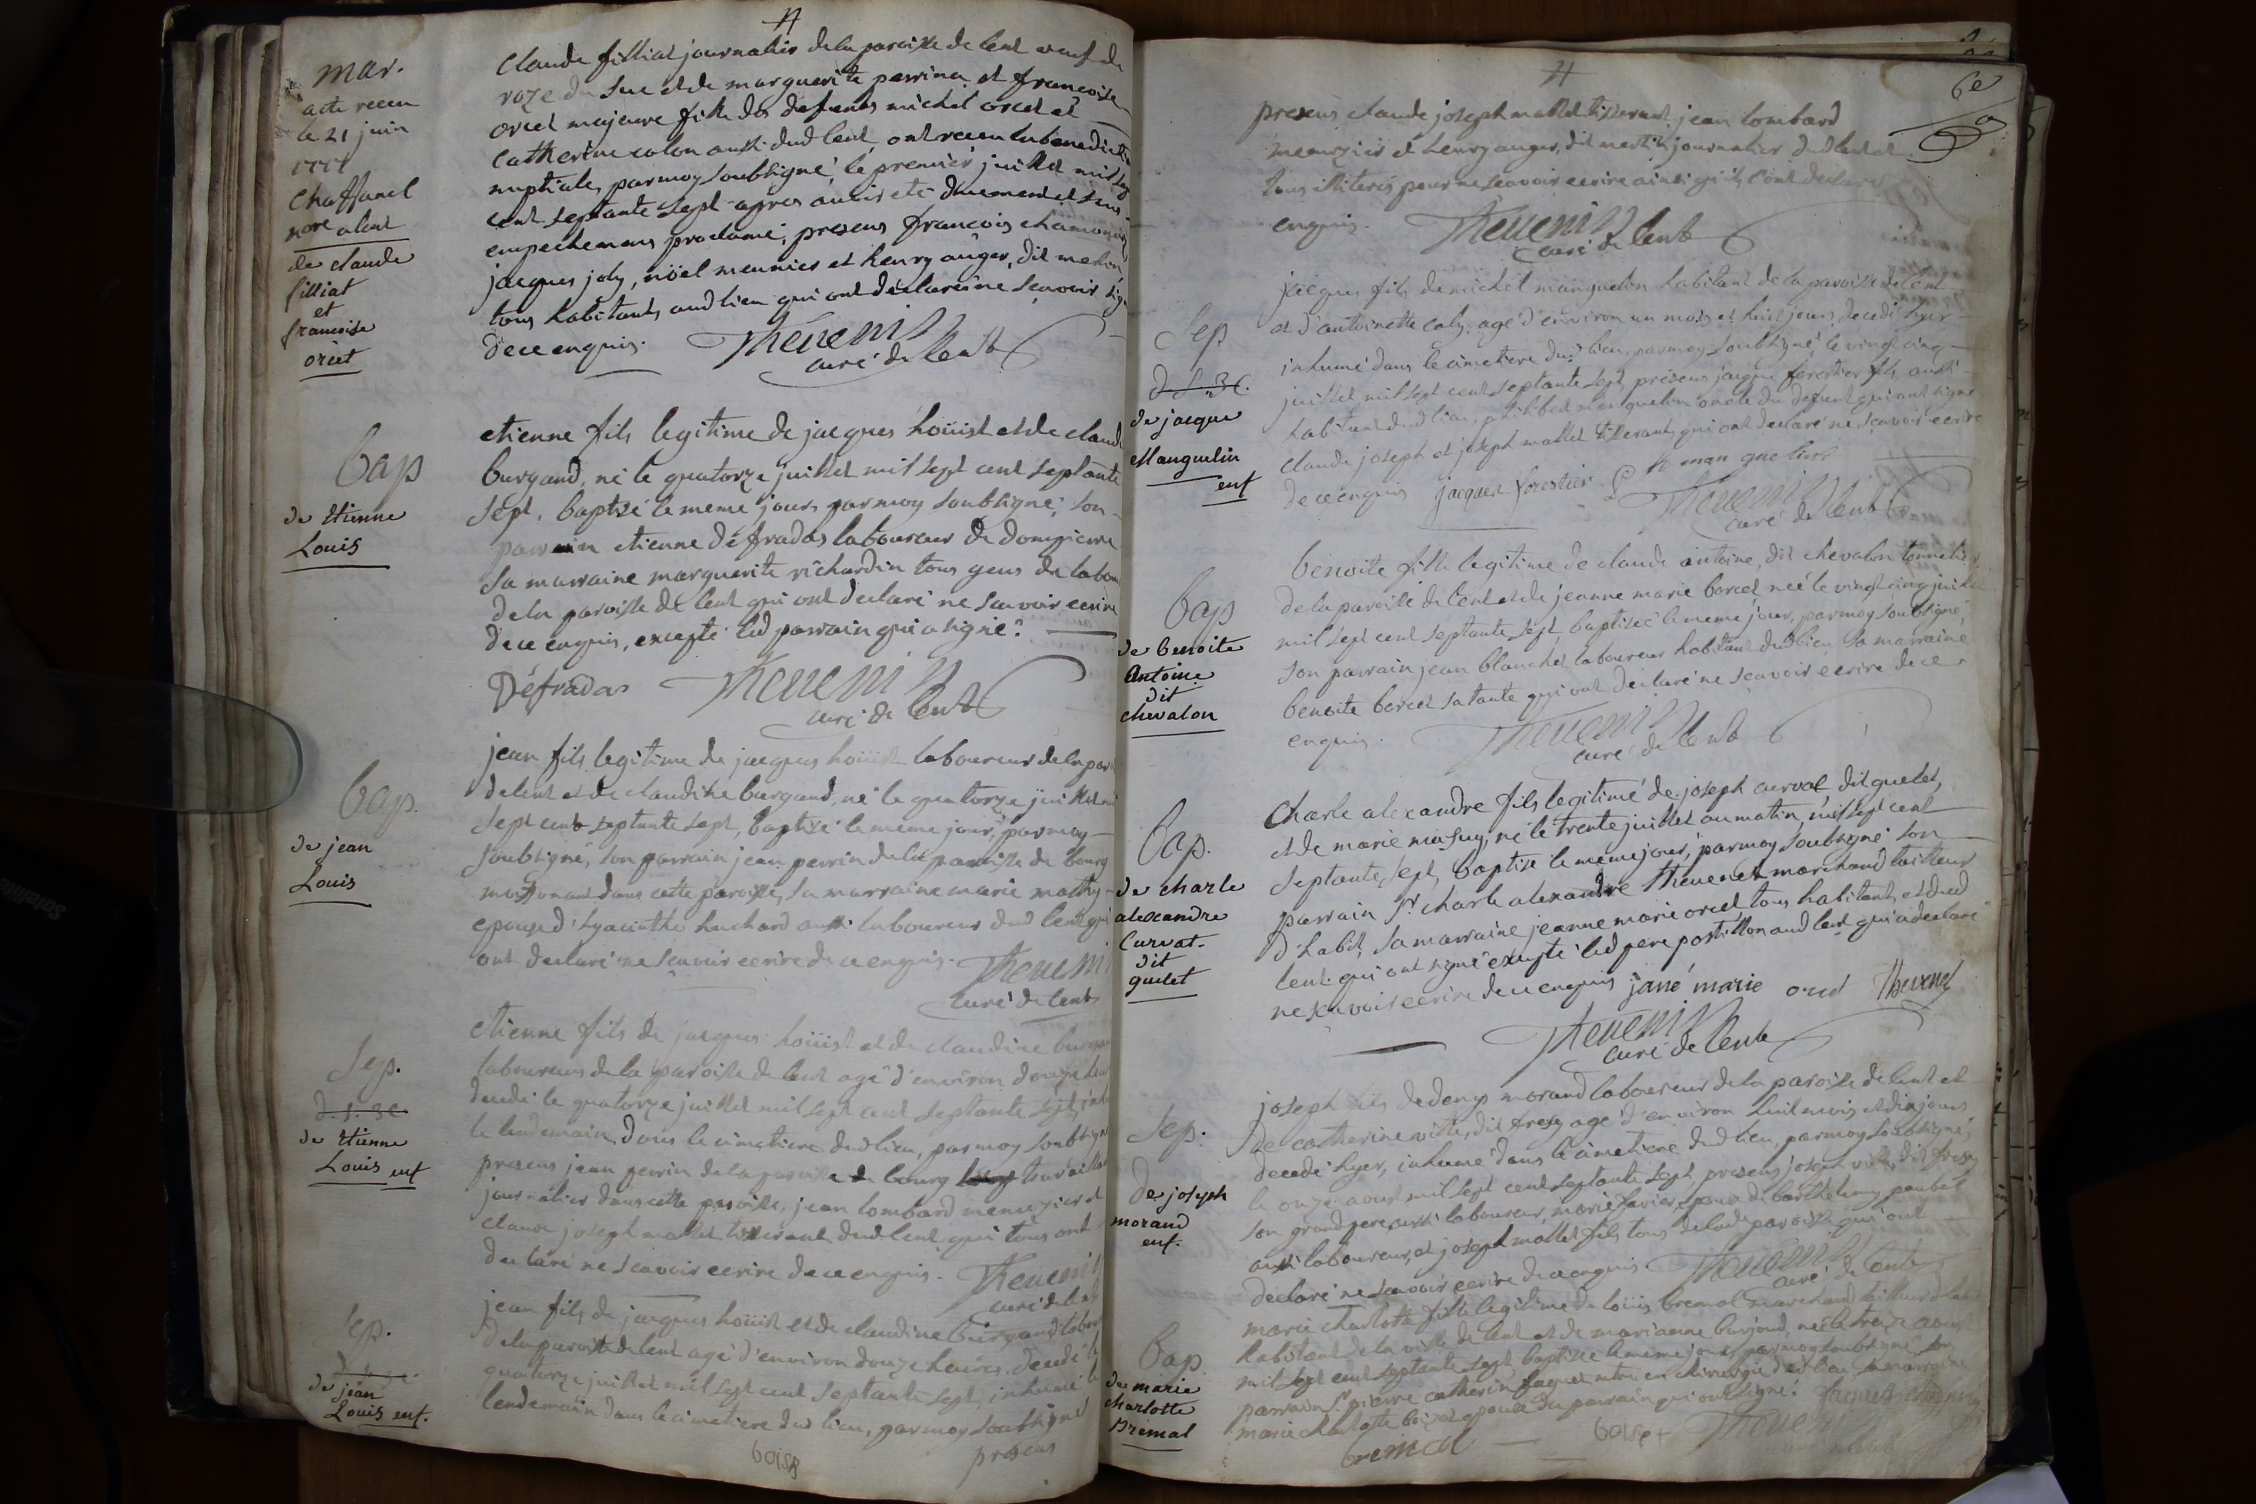 mar.
acte receu
le 21 juin
1777
Chaffanel
nore a lent
de claude
filliat
et
francoise
orcet
Claude filliat journalier de la paroisse de lent veuf de
roze du suc et de marguerite perrina et francoise
orcet majeure fille des defunts michel orcet et
Catherine colon aussi dud lent, ont receu la benedict
nuptiale, par moy soubsigné, le premier juillet mil sep
cent septante sept apres avoir ete duement et sans
empechemens proclamé, presens francois
jacques joly, nöel meunier et henry auger, dit
tous habitants aud lieu qui ont déclarés ne scavoir sig
de ce enquis. Thévenin
curé de lent
bap
de etienne
Louis
etienne fils legitime de jacques hoüist et de claud
burgand, né le quatorze juillet mil sept cent septante
sept, baptisé le meme jour, par moy soubsigné, son
parrain etienne défradas laboureur de dompierre
sa marraine marguerite richardin tous gens de labou
de la paroisse de lent qui ont declaré ne scavoir ecrire
de ce enquis, excepté led parrain qui a signé.
Défradas Thevenin
curé de lent
bap.
de jean
Louis
jean fils legitime de jacques hoüist laboureur de la par
de lent et de claudine burgand, né le quatorze juillet mi
sept cent septante sept, baptisé le meme jour, par moy
soubsigné, son parrain jean perrin de la paroisse de bourg
moissonant dans cette paroisse, sa marraine marie mathy
epouse d'hyacinthe huchard aussi laboureur dud lent qui
ont declaré ne scavoir ecrire de ce enquis. Thevenin
curé de lent
Sep.
de etienne
Louis enf
etienne fils de jacques hoüist et de claudine burgan
laboureurs de la paroisse de lent agé d'environ douze heur
decedé le quatorze juillet mil sept cent septante sept, inhu
le lendemain dans le cimetiere dud lieu, par moy soubsigné
presens jean perrin de la paroisse de bourg travaillant
journalier dans cette paroisse, jean lombard menuzier et
claude joseph mallet tisserant dud lent qui tous ont
declaré ne scavoir ecrire de ce enquis. Thevenin
curé de lent
Sep.
de jean
Louis enf.
jean fils de jacques hoüist et de claudine burgand labour
de la paroisse de lent agé d'environ douze heures, decedé le
quatorze juillet mil sept cent septante sept, inhumé le
lendemain dans le cimetiere dud lieu, par moy soubsigné
presens
60
presens claude joseph mallet tisserant, jean lombard
menuzier et henry auger, dit journalier dud lent et
tous illiterés pour ne scavoir ecrire ainsi qu'ils l'ont declaré
enquis. Thevenin
curé de lent
Sep
de jacque
Manguelin
enf
jacques fils de michel manguelin habitant de la paroisse de lent
et d'antoinette caly, agé d'environ un mois et huit jours, decedé hyer
inhumé dans le cimetiere dud lieu, par moy soubsigné le vingt cinq
juillet mil sept cent septante sept, presens jacque forestier fils aussi
habitant dud lieu, philibert manguelin oncle du defunt qui ont signé
claude joseph et joseph mallet tisserants qui ont declaré ne scavoir ecrire
de ce enquis jacques forestier manguelin
Thevenin
curé de lent
bap
de benoite
Antoine
dit
chevalon
benoite fille legitime de claude antoine, dit chevalon tonnelier
de la paroisse de lent et de jeanne marie borcel née le vingt cinq juillet
mil sept cent septante sept, baptisée le meme jour, par moy soubsigné,
son parrain jean blanchet laboureur habitant dud lieu, sa marraine
benoite borcel sa tante qui ont declaré ne scavoir ecrire de ce
enquis. Thevenin
curé de lent
bap.
de charle
alexandre
Curvat
dit
guelet
Charle alexandre fils legitime de joseph curvat dit guelet,
et de marie né le trente juillet au matin, mil sept cent
septante sept, baptisé le meme jour, par moy soubsigné son
parrain sr charle alexandre thevenet marchand tailleur
d'habit, sa marraine jeanne marie orcet tous habitants et dud
lent qui ont signé excepté led pere postillon aud lent qui a declaré
ne scavoir ecrire de ce enquis jané marie orcet Thevenet
Thevenin
curé de lent
Sep.
de joseph
morand
enf.
joseph fils de denys morand laboureur de la paroisse de lent et
de catherine dit agé d'environ huit mois et dix jours
decedé hyer, inhumé dans le cimetiere dud lieu, par moy soubsigné,
le onze aoust mil sept cent septante sept, presens joseph dit
son grand pere aussi laboureur, marie epouse de barthelemy
aussi laboureur, et joseph mallet fils, tous de lad paroisse qui ont
declaré ne scavoir ecrire de ce enquis Thevenin
curé de lent
bap
de marie
charlotte
Bremal
marie charlotte fille legitime de loüis bremal marchand tailleur d'habit
habitant de la ville de lent et de marianne burjoud, née le treize aoust
mil sept cent septante sept, baptisée le meme jour, par moy soubsigné, son
parrain sr pierre catherin en chirurgie dud lieu sa marraine
marie charlotte epouse du parrain qui ont signé.
bremal Thevenin